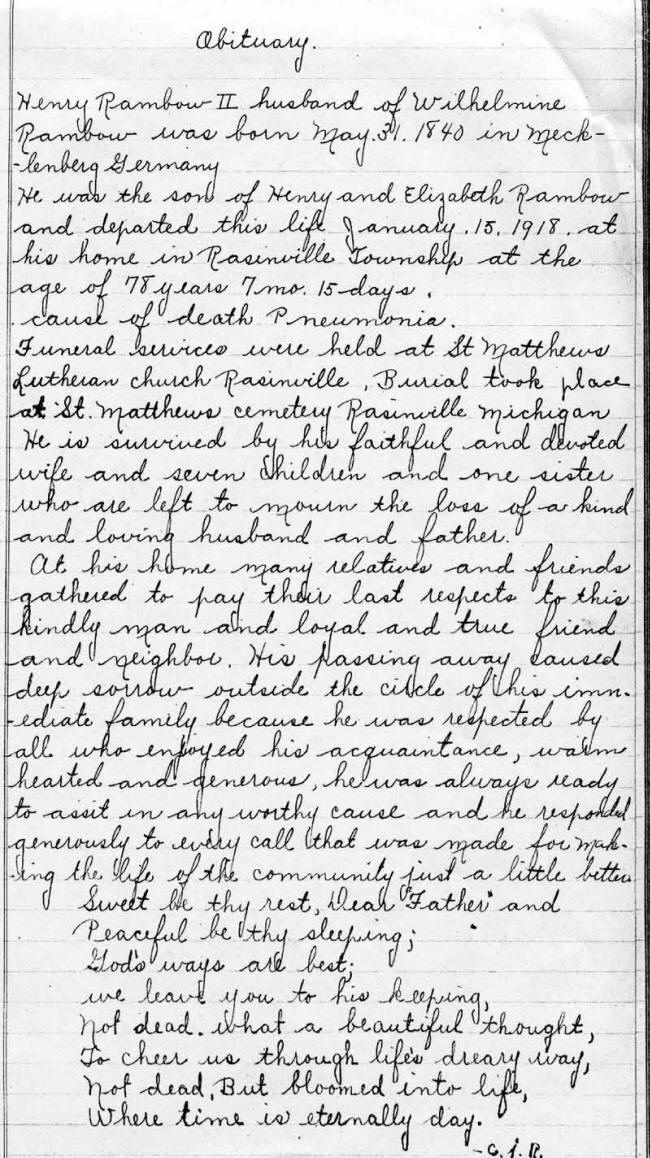 Obituary.
Henry Rambow II husband of Wilhelmine
Rambow was born May. 31. 1840 in Meck-
-lenberg Germany
He was the son of Henry and Elizabeth Rambow
and departed this life January. 15, 1918. at
his home in Rasinville Township at the
age of 78 years 7 mo. 15 days.
cause of death Pneumonia.
Funeral services were held at St Matthews
Lutheran church Rasinville, Burial took place
at St. Matthews cemetery Rasinville Michigan
He is survived by his faithful and devoted
wife and seven children and one sister
who are left to mourn the loss of a kind
and loving husband and father.
At his home many relatives and friends
gathered to pay their last respects to this
kindly man and loyal and true friend
and neighbor. His passing away caused
deep sorrow outside the circle of his imn-
-ediate family because he was respected by
all who enjoyed his acquaintance, warm
hearted and generous, he was always ready
to assit in any worthy cause and he responded
generously to every call that was made for mak-
-ing the life of the community just a little better
Sweet be thy rest, Dear "Father" and
Peaceful be thy sleeping;
God's ways are best;
we leave you to his keeping,
Not dead. what a beautiful thought,
To cheer us through life's dreary way,
Not dead, But bloomed into life,
Where time is eternally day.
-C. J. R.